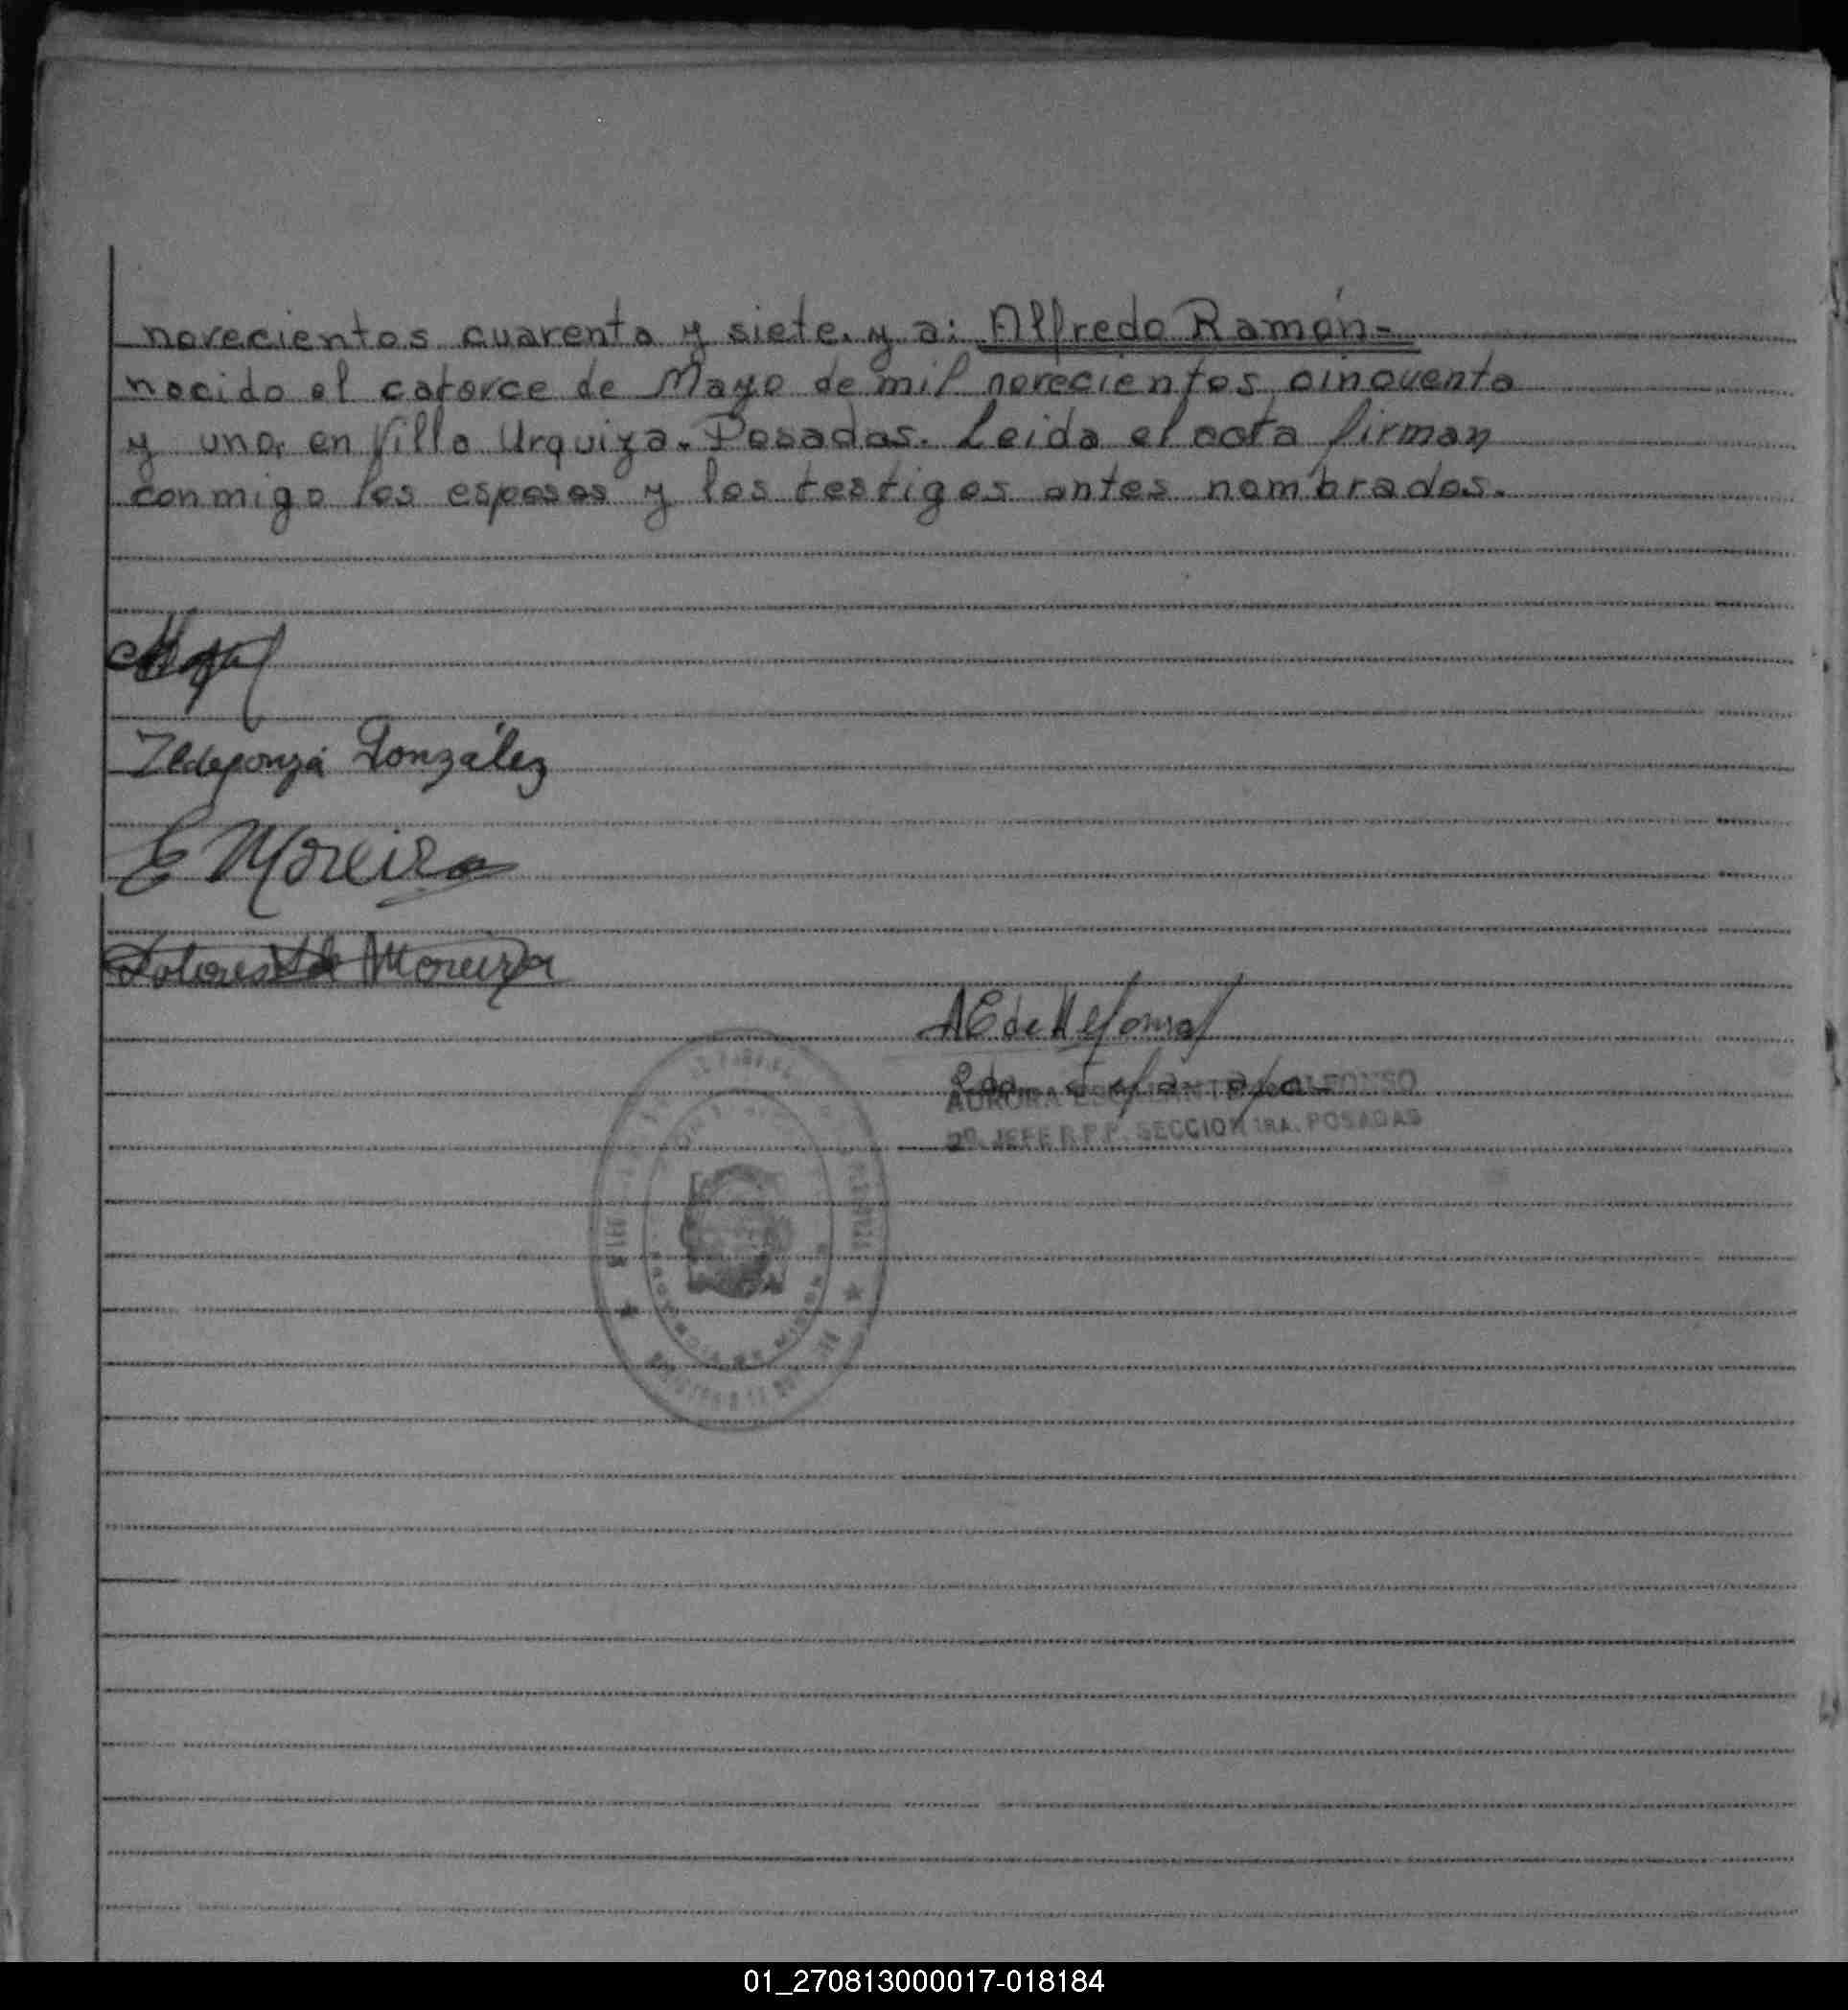 novecientos cuarenta y siete. y a: Alfredo Ramón-
nacido el catorce de Mayo de mil novecientos cincuenta
y uno, en Villa Urquiza. Posadas. Leida el acta firman
conmigo los esposos y los testigos antes nombrados.
Ildefonza González
E Moreira
Dolores de Moreira
AE de Alfonso
2do Jefa
AURORA ALFONSO
2º JEFE R.P.P. SECCION 1RA. POSADAS
PROVINCIA DE MISIONES
01_270813000017-018184